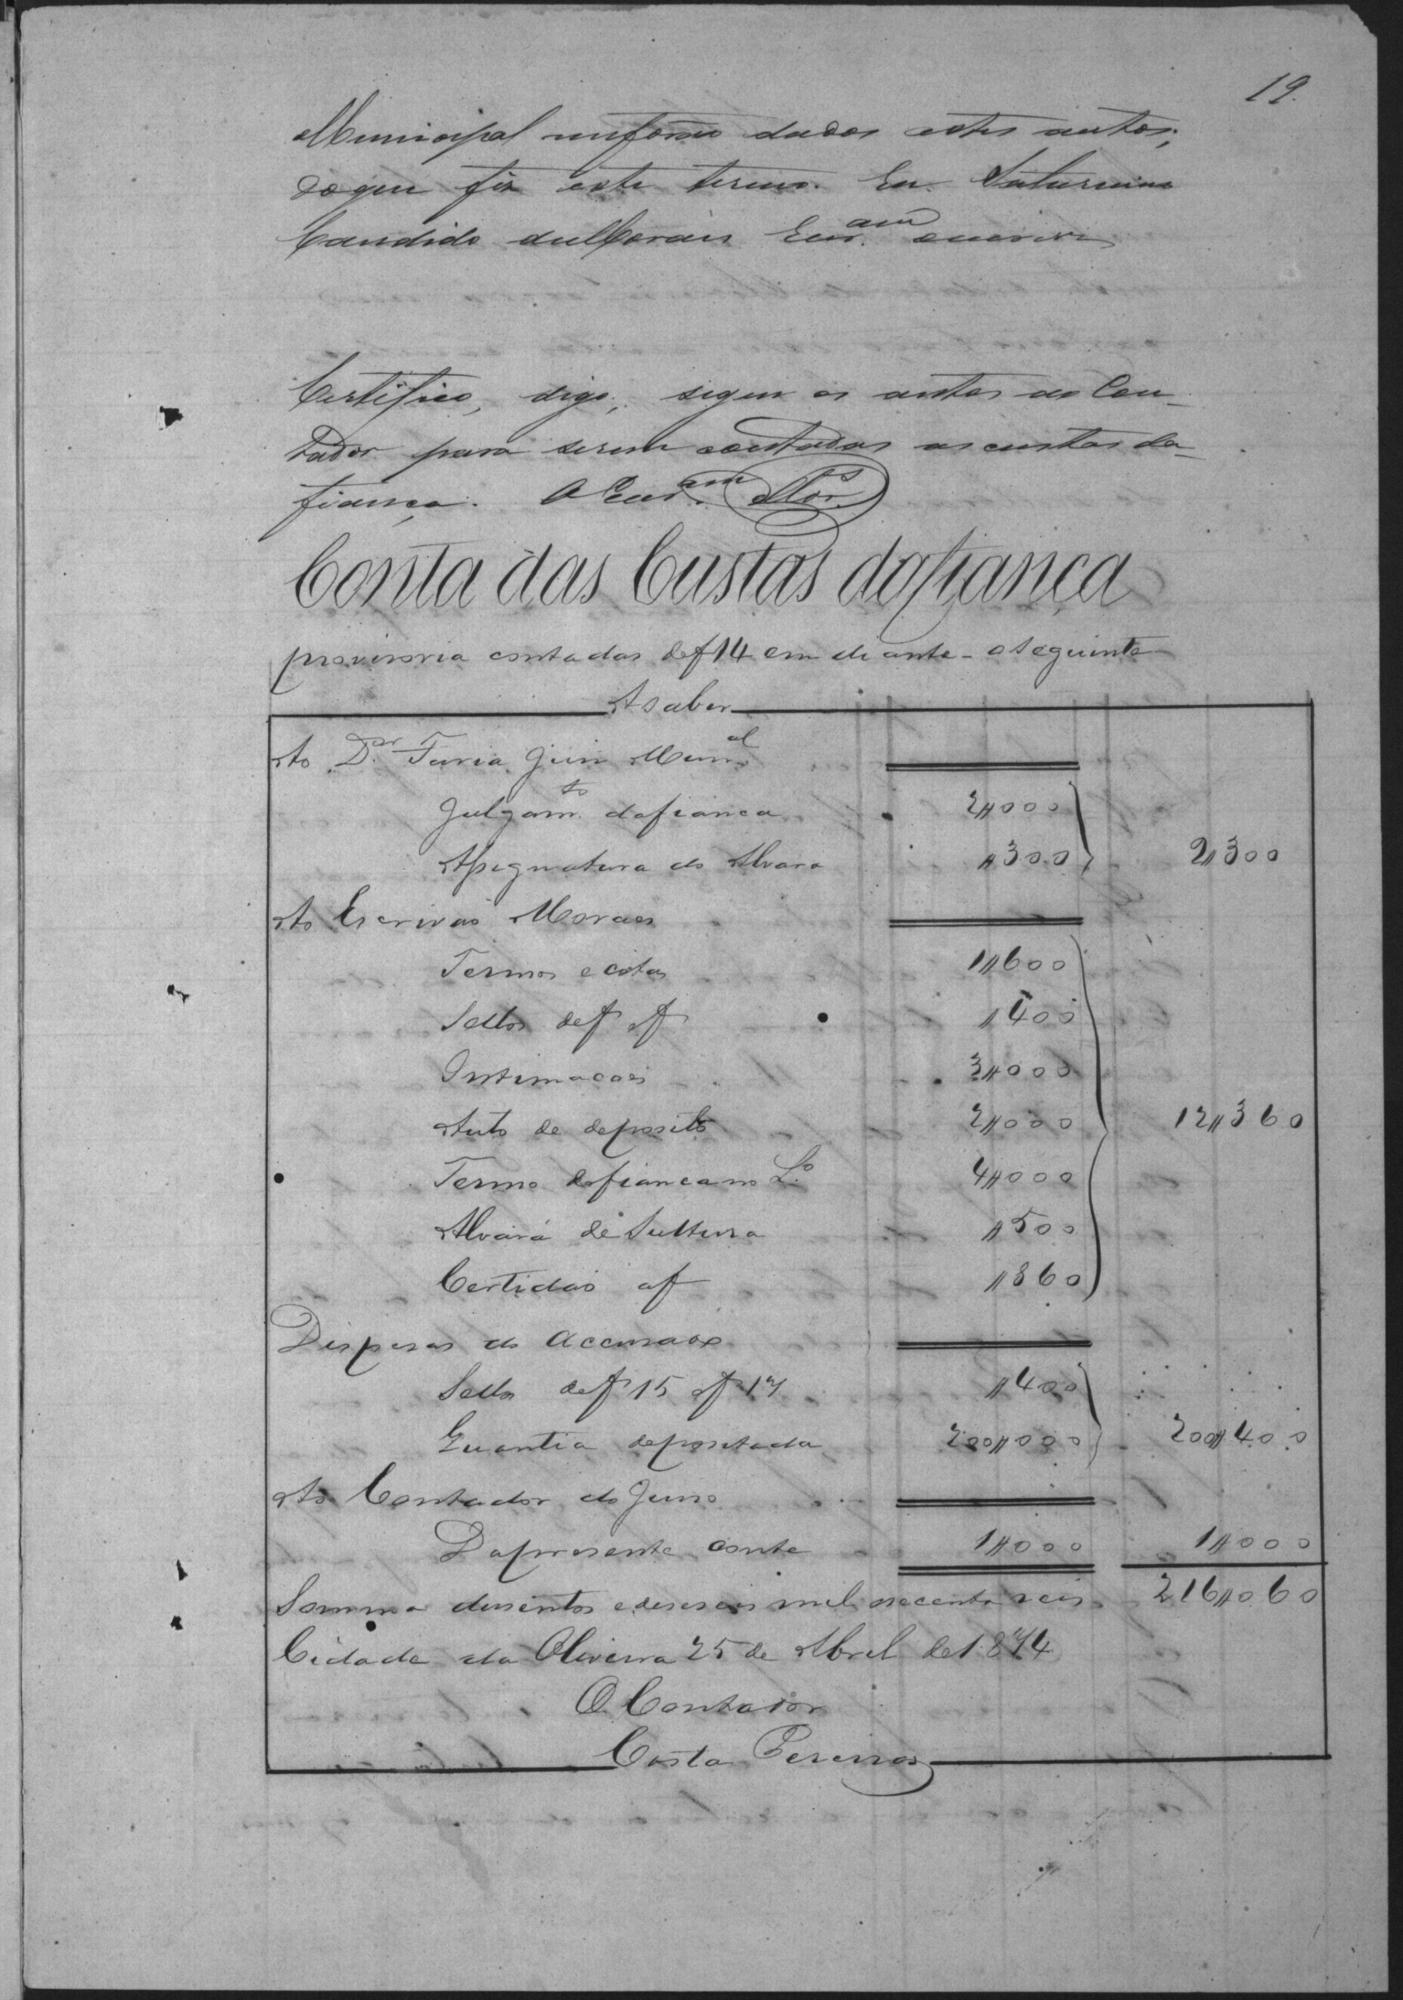 19.
Municipal me forão dados estes autos;
do que fiz este termo. Eu Saturnino
Candido de Moraes Escr.am
Certifico, digo, seguem os autos ao Con-
tador para serem contadas as custas da
fiança. O Escr.am Mor.es
Conta das Custas da fiança
provisoria contadas de f 14 em diante o seguinte
A saber
Ao D.or Faria Juiz Mun.al
Julgam.to da fianca 2,,000
Assignatura do Alvara ,,300 2,,300
Ao Escrivaõ Moraes
Termos e cotas 1,,600
Sellos de f af ,,400
Intimacoes 3,,000
Auto de deposito 2,,000 12,,360
Termo da fianca no L.o 4,,000
Alvará de Sultura ,,500
Certidaõ af ,,860
Dispesas do Accusado
Sellos de f 15 af 17 ,,400
Quantia depositada 200,,000 200,,400
Ao Contador do Juiso
Da presente conta 1,,000 1,,000
Somma dusentos e deseseis mil e secenta reis 216,,060
Cidade da Oliveira 25 de Abril de 1874
O Contador
Costa Pereira